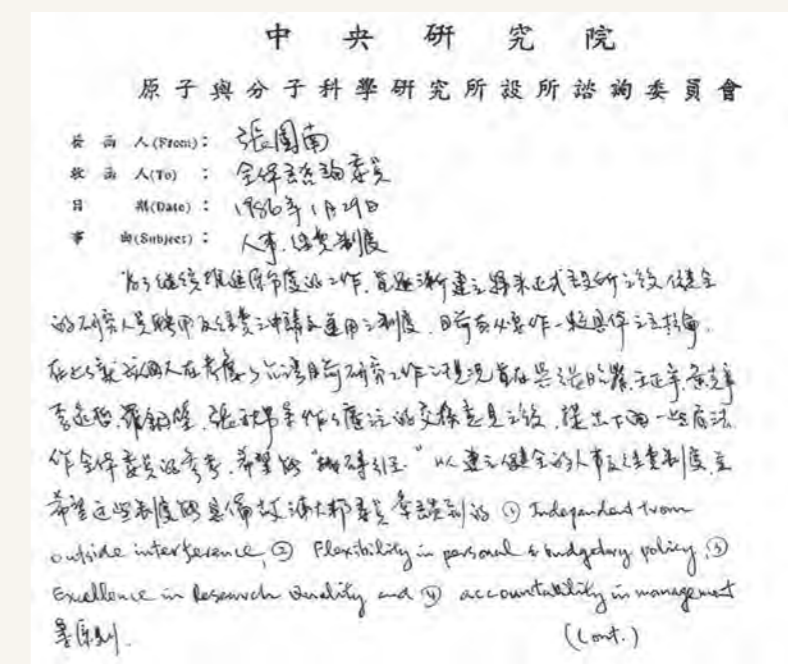 中央研究院
原子與分子科學研究所設所諮詢委員會
發函人(From)： 張圖南
收函人(To)： 全体諮詢委員
日期(Date)： 1986年1月29日
事由(Subject)： 人事、經費制度
為了繼續推進原分所的工作，並逐漸建立將來正式設所之後健全
的研究人員聘用及經費之申請與運用之制度，目前有必要作一較具体之檢討。
在考慮了台湾目前研究工作之現況
交換意見之後，提出下面一些看法
作全体委員的參考，希望能"拋磚引玉"以建立健全的人事及經費制度，並
希望這些制度能具備 浦大邦委員 談到的 ① Independent from
outside interference, ② Flexibility in personal & budgetary policy, ③
Excellence in Research Quality and ④ accountability in management
等原則.
(Cont.)